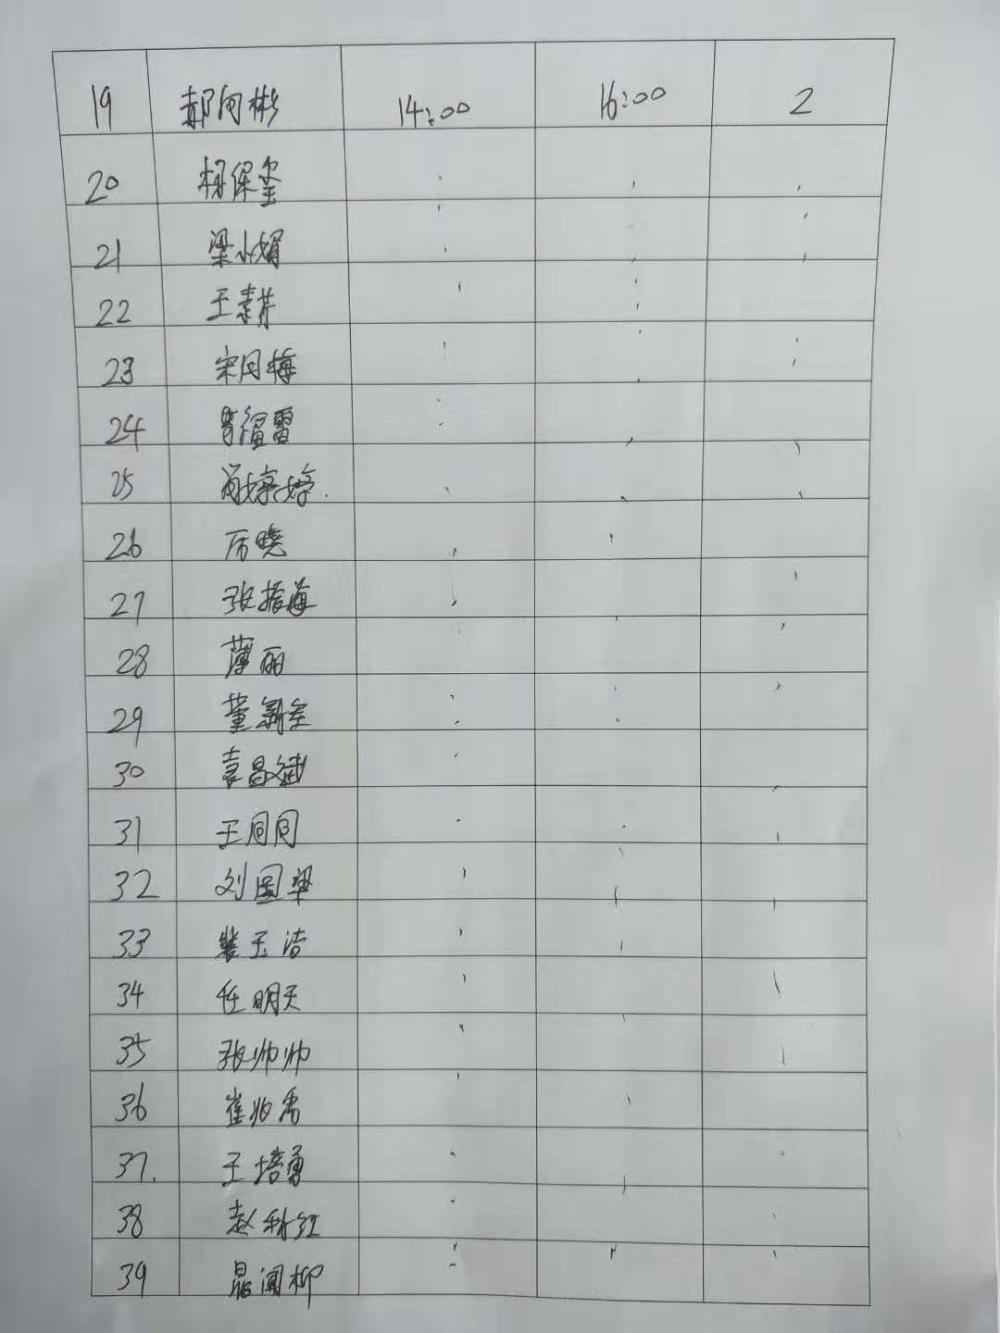 19 郝向彬 14:00 16:00 2
20 杨保奎
21 梁小娟
22 王素芹
23 宋同梅
24 雷
25 婷婷
26 厉晓
27 张振海
28 薄丽
29 董新奎
30 袁昌斌
31 王同同
32 刘国梁
33 裴玉洁
34 任明天
35 张帅帅
36 崔兆禹
37 王培勇
38 赵秋红
39 聂闻柳